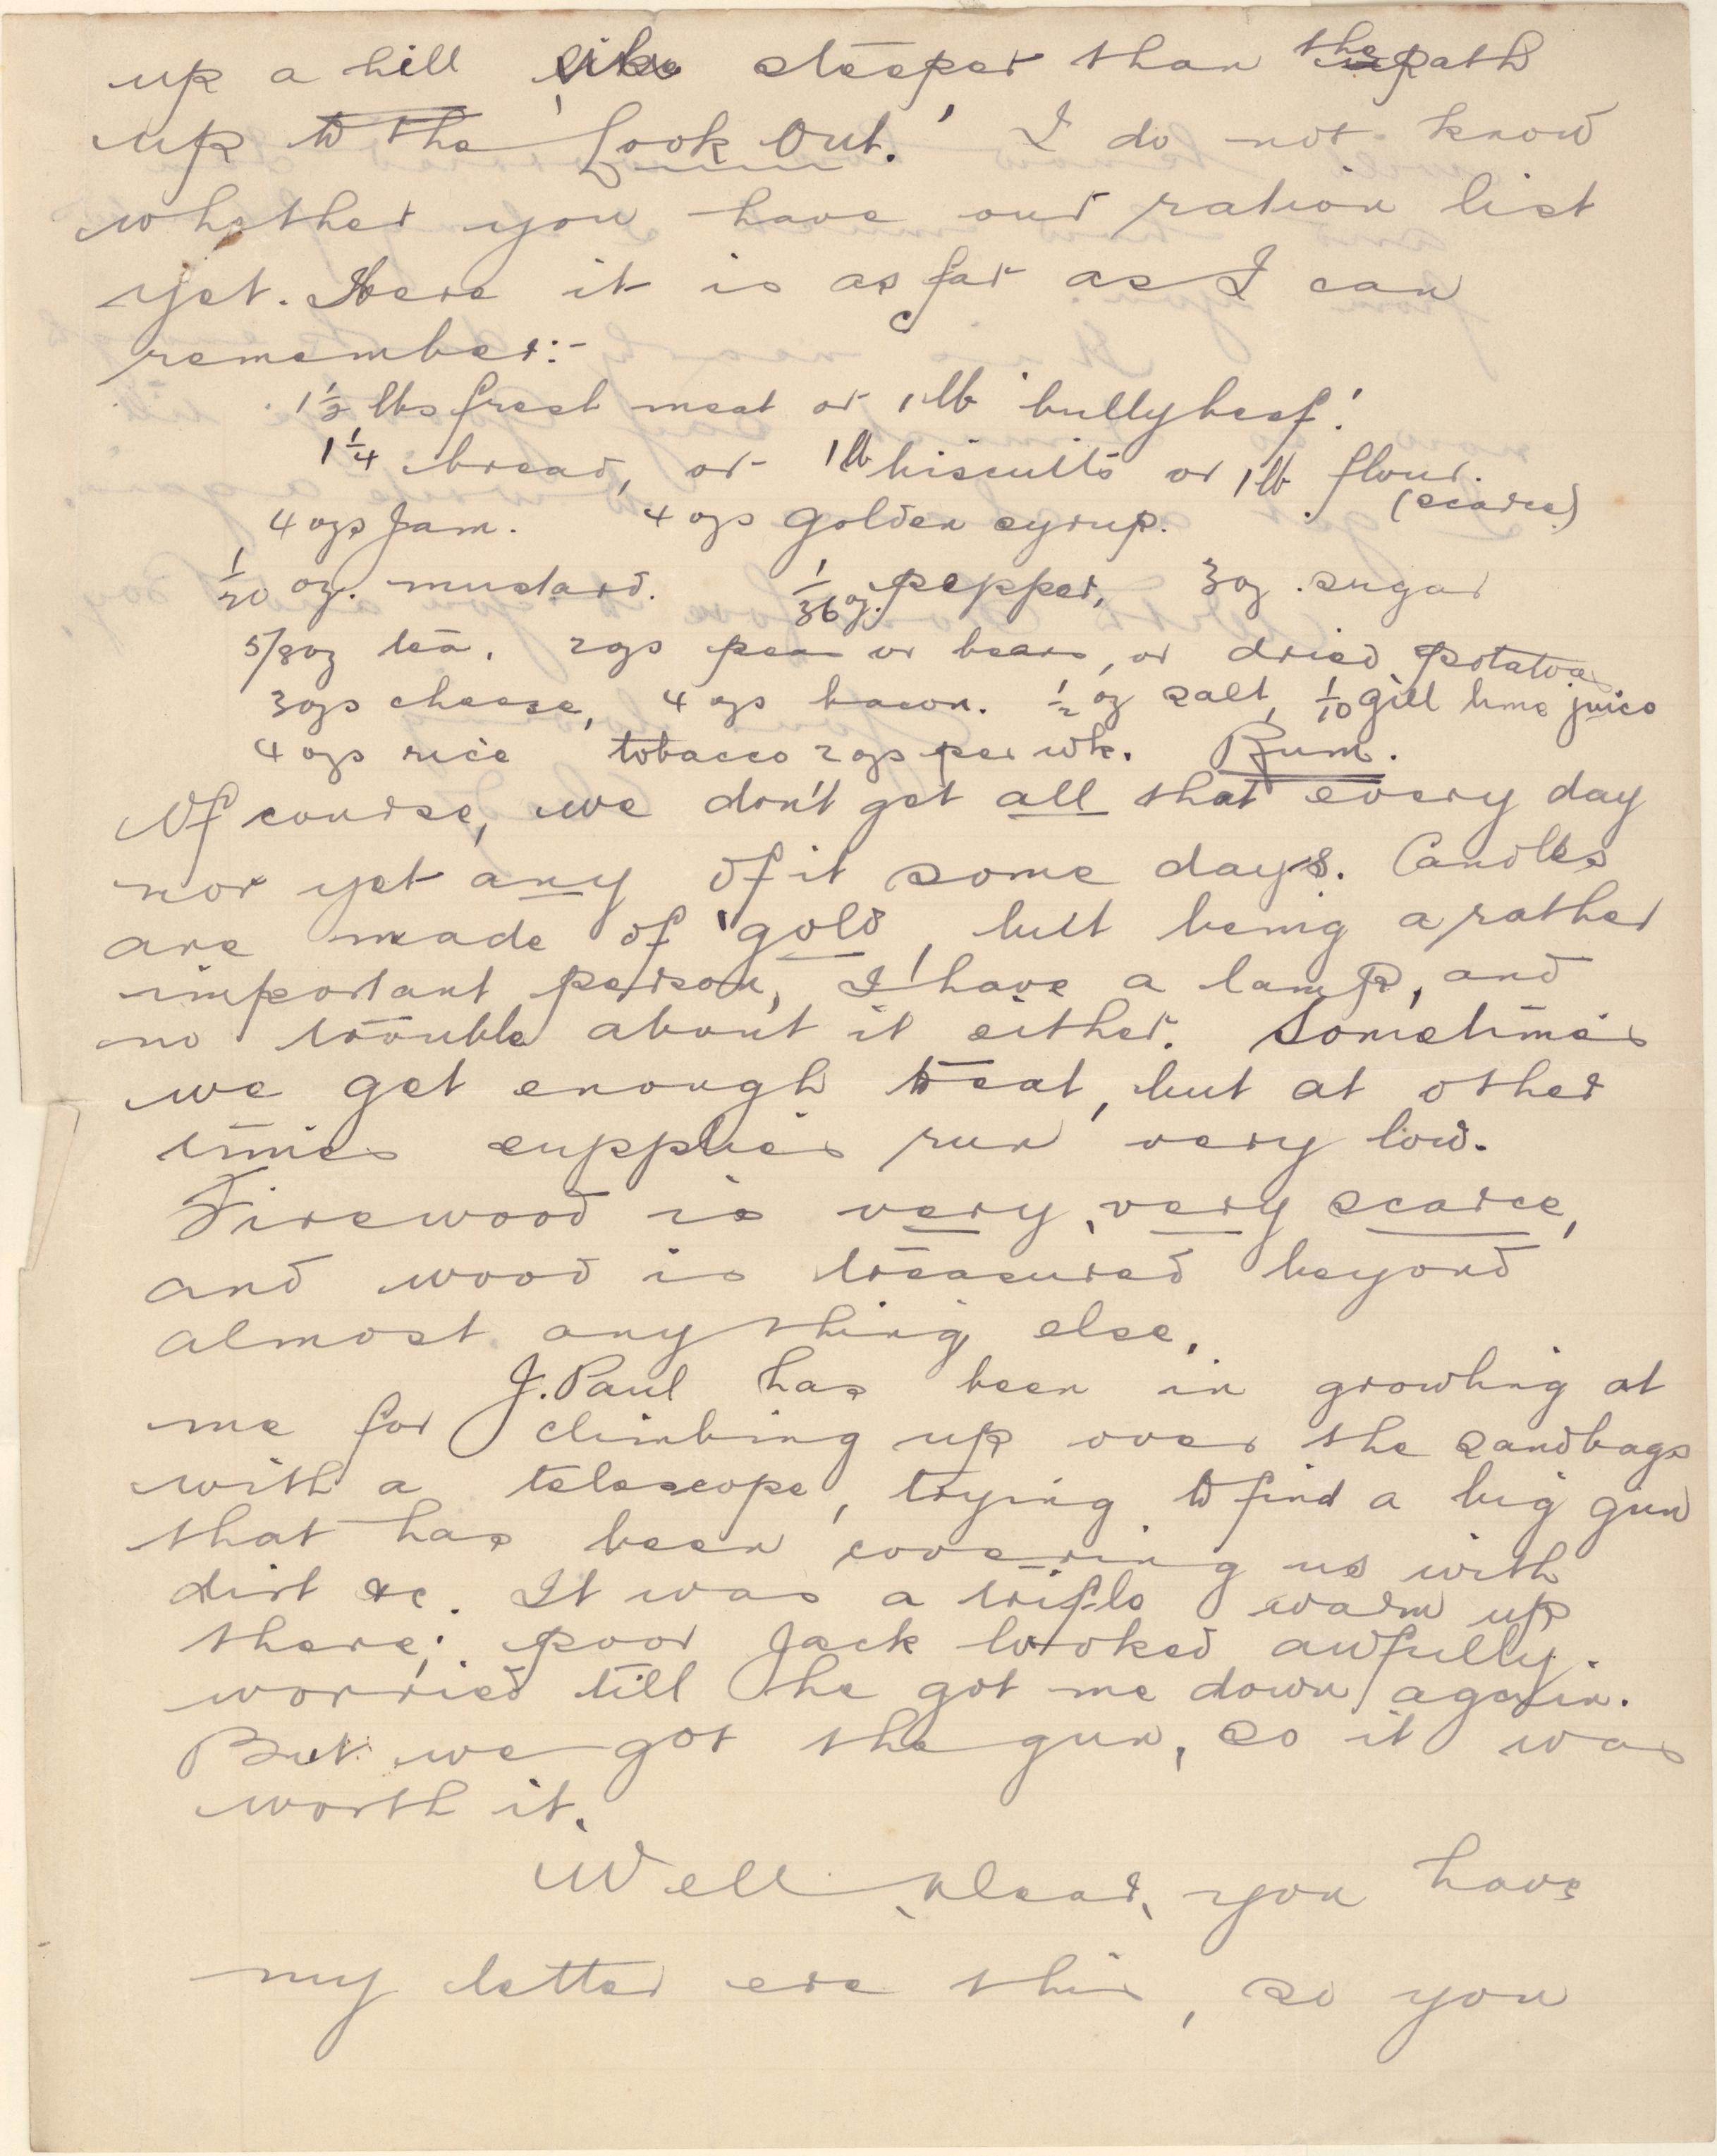 up a hill like steeper than the path
up to the 'Look Out.' I do not know
whether you have our ration list
yet. Here it is as far as I can
remember:-
1½ lbs fresh meat or 1 lb 'bully beef.'
1¼ bread, or 1 lb biscuits or 1 lb flour.
(scarce)
4 ozs Jam. 4 ozs Golden syrup.
1/20 oz. mustard. 1/36 oz. pepper, 3 oz. sugar
5/8 oz tea. 2 ozs peas or beans, or dried potatoes
3 ozs cheese, 4 ozs bacon. ½ oz salt, 1/10 gill lime juice
4 ozs rice tobacco 2 ozs per wk. Rum.
Of course, we don't get all that every day
nor yet any of it some days. Candles
are made of 'gold', but being a rather
important person, I have a lamp, and
no trouble about it either. Sometimes
we get enough to eat, but at other
times supplies run very low.
Firewood is very, very scarce,
and wood is treasured beyond
almost anything else.
J. Paul has been in growling at
me for climbing up over the sandbags
with a telescope, trying to find a big gun
that has been covering us with
dirt &c. It was a trifle warm up
there; poor Jack looked awfully
worried till he got me down again.
But we got the gun, so it was
worth it.
Well, dear, you have
my letter ere this, so you